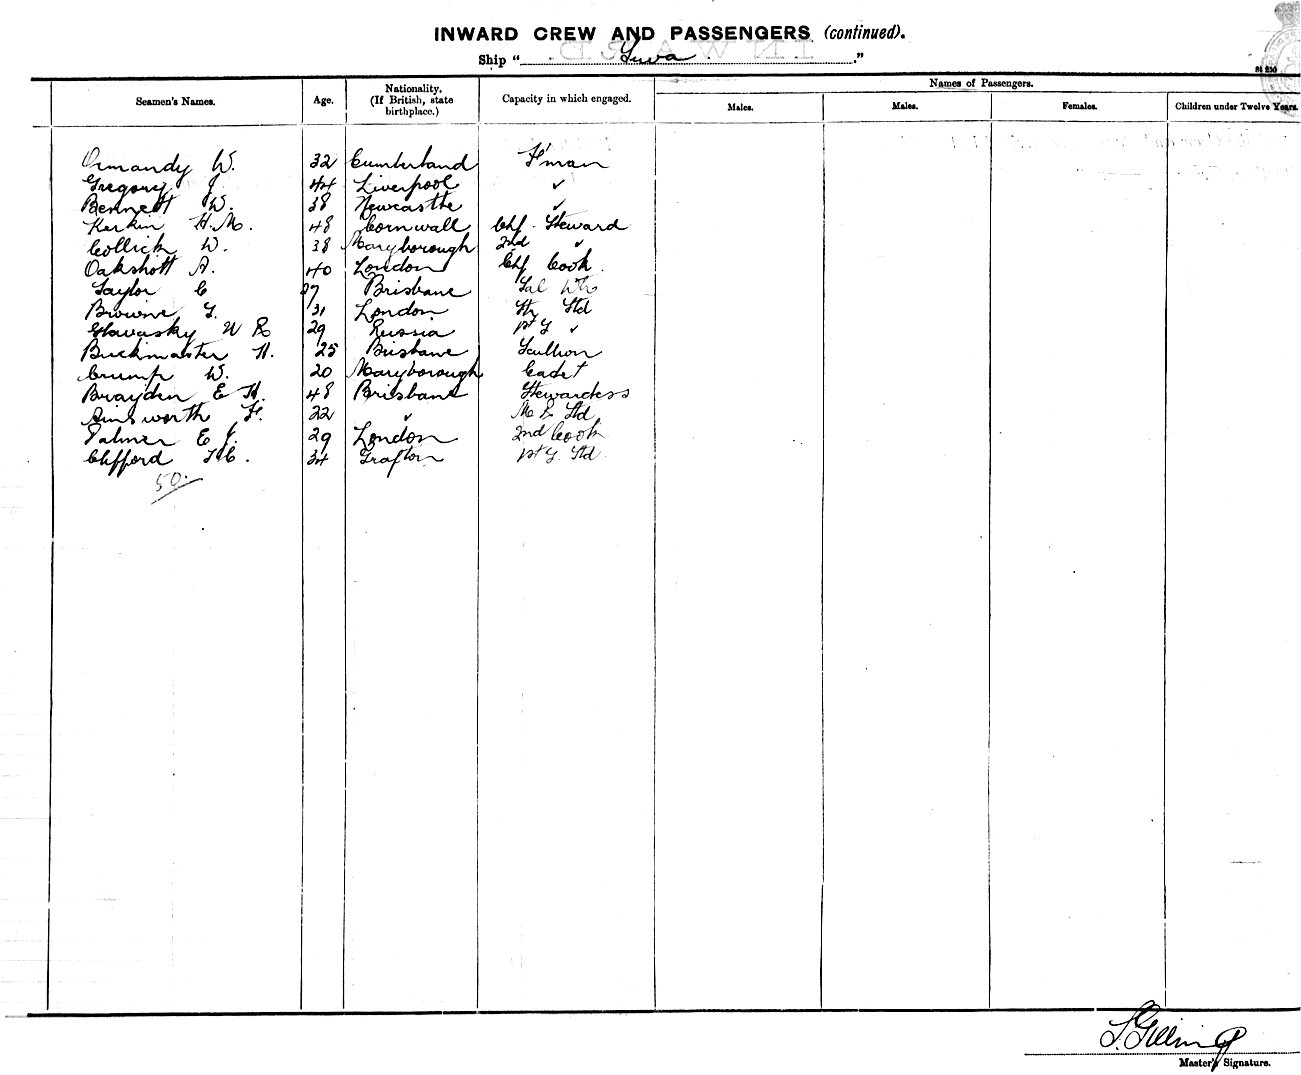 INWARD CREW AND PASSENGERS (continued).
Ship " "
Seamen's Names. Age. Nationality. (If British, state birthplace.) Capacity in which engaged. Names of Passengers.
Males. Males. Females. Children under Twelve Years.
Ormandy W. 32 Cumberland F'man
Gregory J. 44 Liverpool ✓
Bennett W. 38 Newcastle ✓
Kerkin H.M. 48 Cornwall Chf. Steward
Collick W. 38 Maryborough 2nd ✓
Oakshott A. 40 London Chf Cook.
Taylor C 27 Brisbane Sal Wtr
Browne G. 31 London Std
Glavasky W R 29 Russia 1st G ✓
Buckmaster H. 25 Brisbane Scullion
Crump W. 20 Maryborough Cadet
Brayden E H. 48 Brisbane Stewardess
Ainsworth F. 22 ✓ M R Std
Palmer E J. 29 London 2nd Cook
Clifford T C. 34 Grafton 1st G. Std.
50.
Master's Signature.